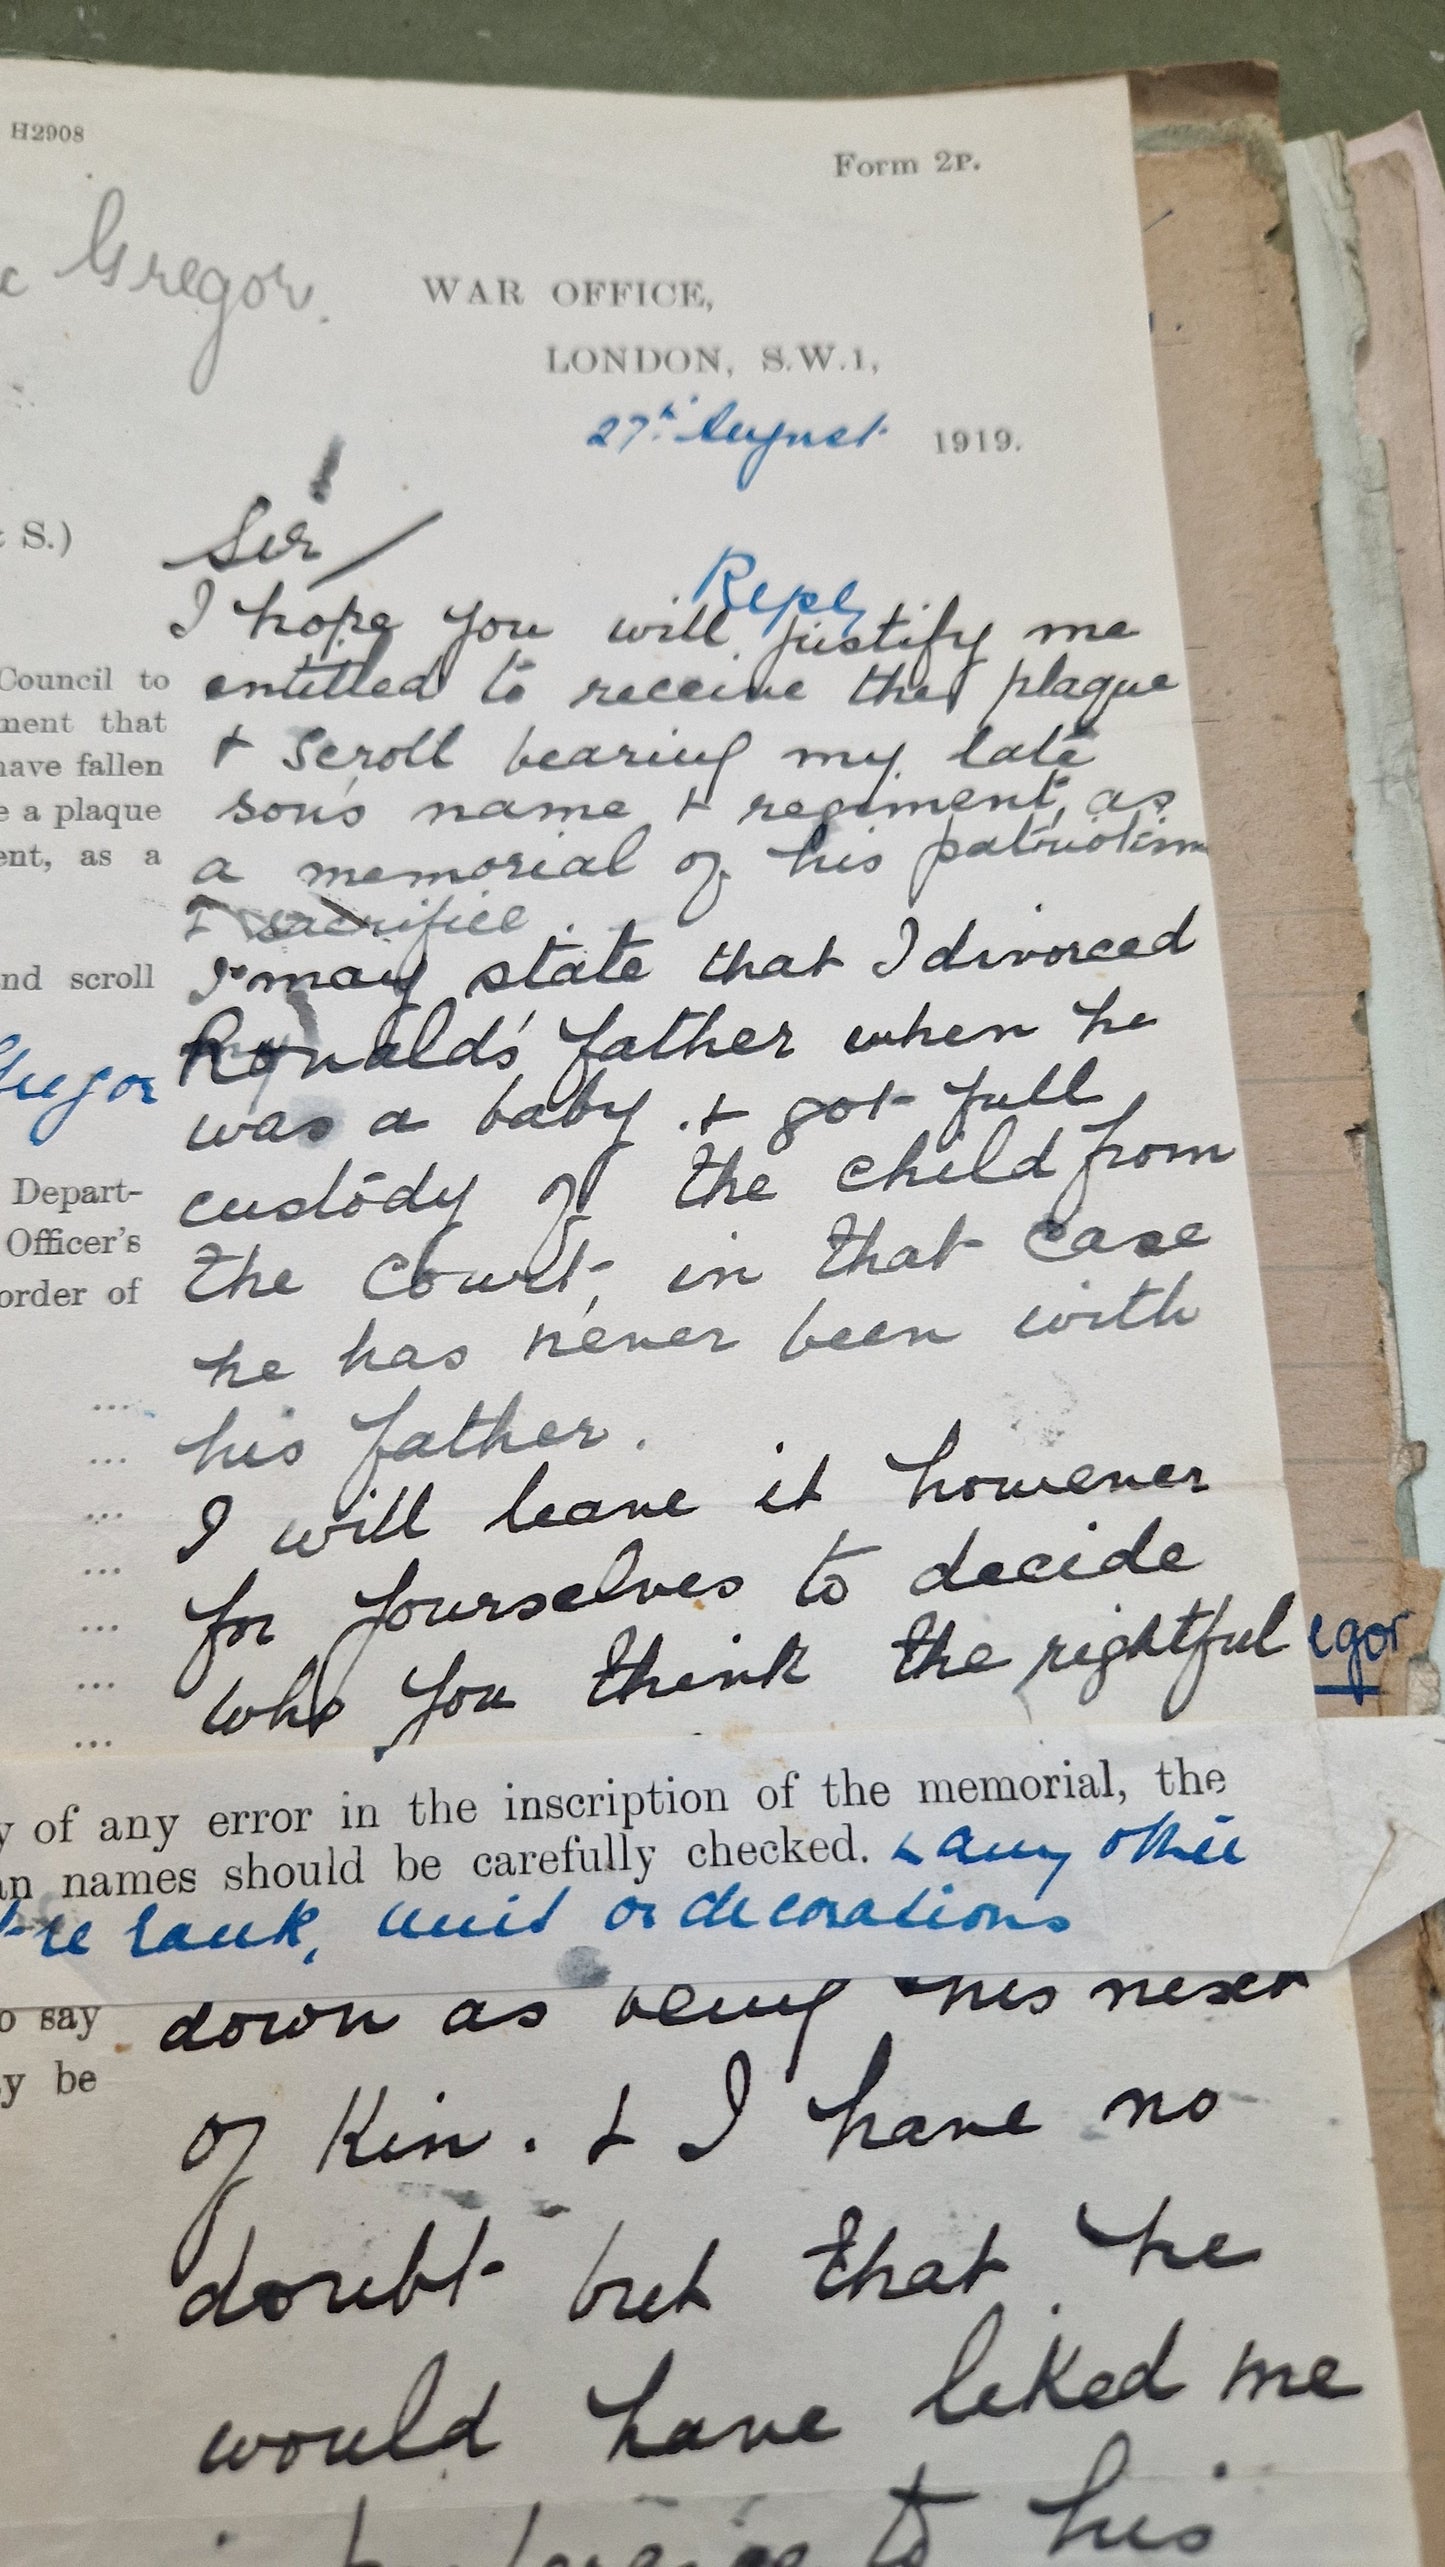 H2908
Form 2P.
Gregor.
WAR OFFICE,
LONDON, S.W.1,
27th August 1919.
S.)
Sir
Reply
I hope you will justify me
Council to
entitled to receive the plaque
ment that
& scroll bearing my late
have fallen
son's name & regiment, as
e a plaque
a memorial of his patriotism
ent, as a
& sacrifice.
I may state that I divorced
nd scroll
Ronald's father when he
Gregor
was a baby. & got full
custody of the child from
Depart-
Officer's
the Court, in that case
order of
he has never been with
...
his father.
...
I will leave it however
...
for yourselves to decide
...
who you think the rightful
...
egor
...
...
y of any error in the inscription of the memorial, the
an names should be carefully checked. & any other
rank, unit or decorations
down as being his next
o say
y be
of Kin. & I have no
doubt but that he
would have liked me
to his